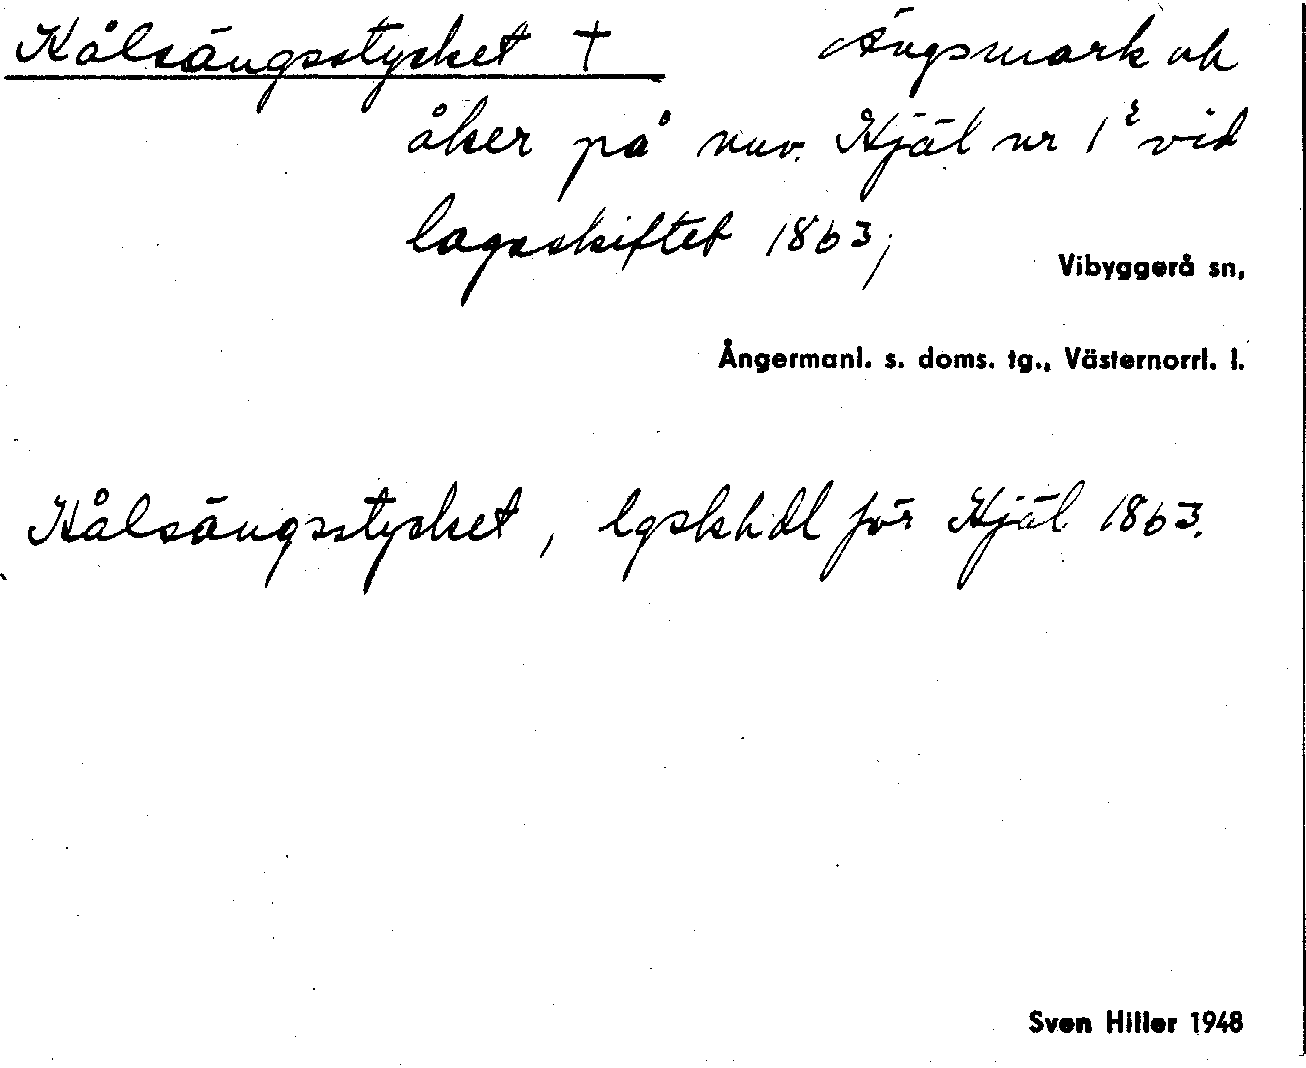 Kålsängsstycket † Ängsmark och
åker på nuv. Hjäl nr 1² vid
lagaskiftet 1863;
Vibyggerå sn,
Ångermanl. s. doms. tg., Västernorrl. l.
Kålsängsstycket, lgskhdl för Hjäl 1863.
Sven Hiller 1948